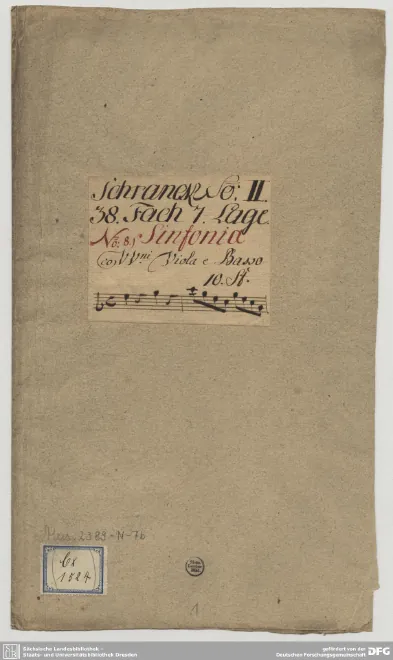 Schranck No: II.
38. Fach 7. Lage
No: 8.) Sinfonia
co VVni Viola e Basso
10. St.
Mus. 2389-N-7b
Cx
1524
1
Sächsische Landesbibliothek -
Staats- und Universitätsbibliothek Dresden
gefördert von der
Deutschen Forschungsgemeinschaft
DFG